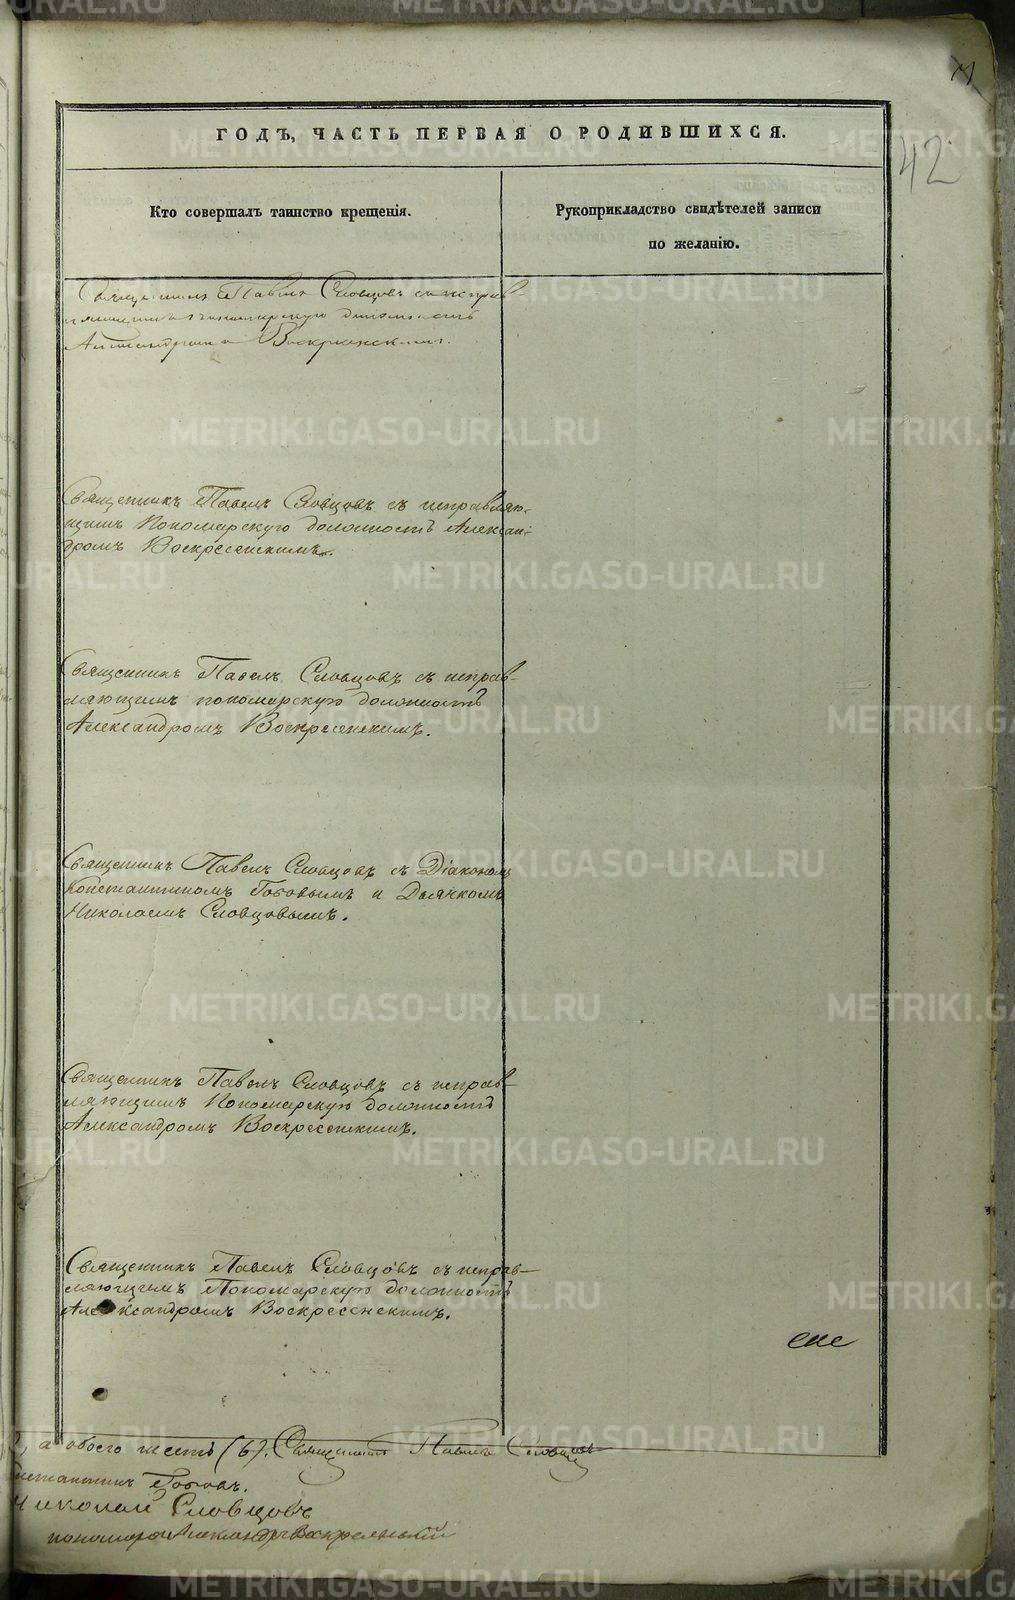 42
ГОДЪ, ЧАСТЬ ПЕРВАЯ О РОДИВШИХСЯ.
Кто совершалъ таинство крещенія.
Рукоприкладство свидѣтелей записи
по желанію.
Священникъ Павелъ Словцовъ съ исправ-
ляющимъ пономарскую должность
Александромъ Воскресенскимъ.
Священникъ Павелъ Словцовъ съ исправляю-
щимъ Пономарскую должность Алексан-
дромъ Воскресенскимъ.
Священникъ Павелъ Словцовъ съ исправ-
ляющимъ пономарскую должность
Александромъ Воскресенскимъ.
Священникъ Павелъ Словцовъ съ Діакономъ
Константиномъ Гобовымъ и Дьячкомъ
Николаемъ Словцовымъ.
Священникъ Павелъ Словцовъ съ исправ-
ляющимъ Пономарскую должность
Александромъ Воскресенскимъ.
Священникъ Павелъ Словцовъ съ исправ-
ляющимъ Пономарскую должность
Александромъ Воскресенскимъ.
а обоего шесть (6). Священникъ Павелъ Словцовъ
Николай Словцовъ
пономарь Александръ Воскресенскій
METRIKI.GASO-URAL.RU